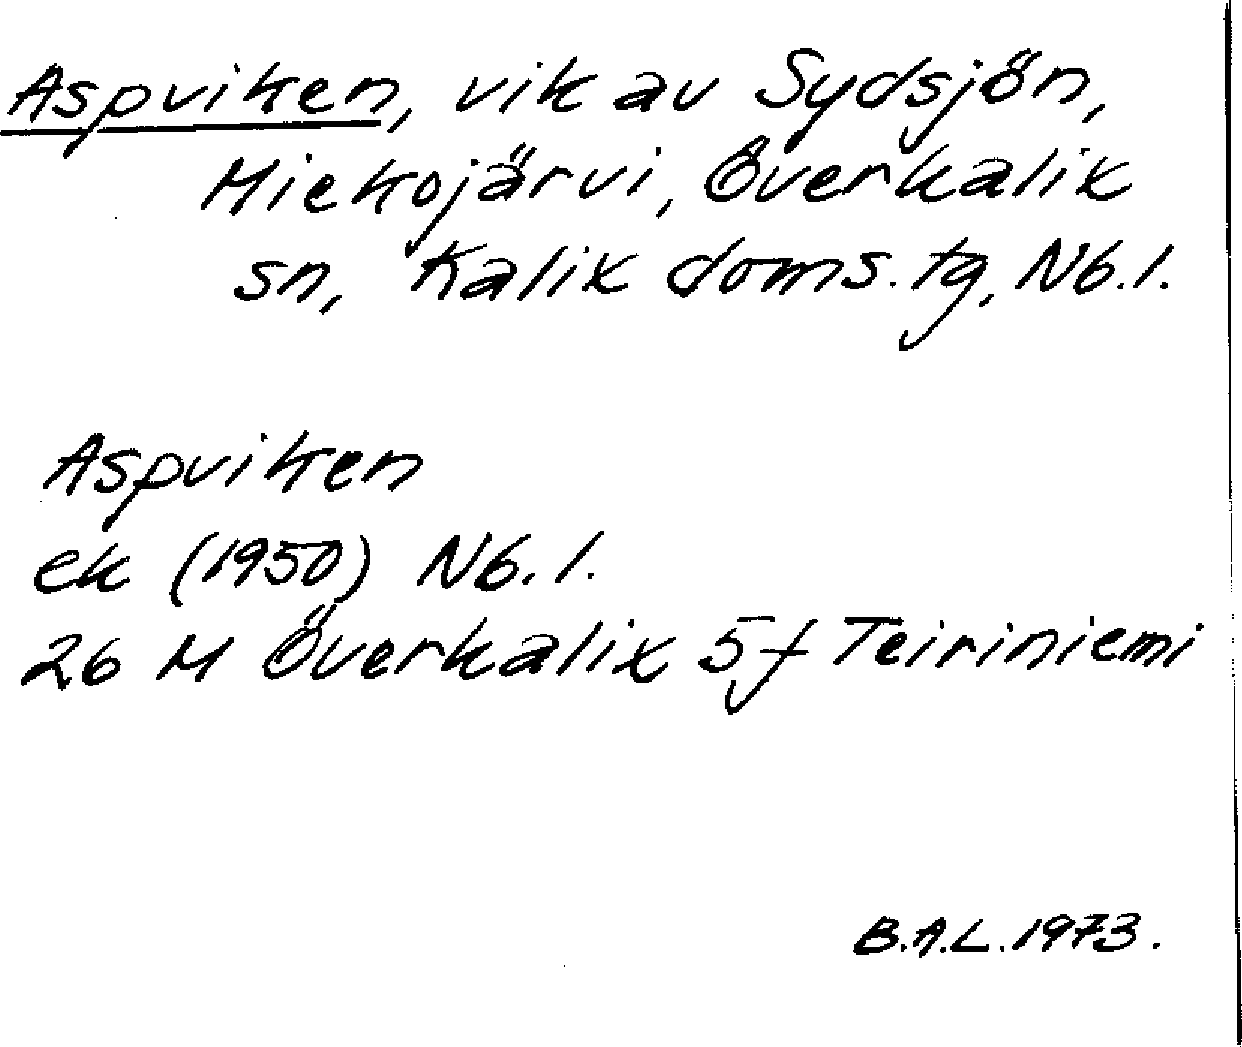 Aspviken, vik av Sydsjön,
Miekojärvi, Överkalix
sn, Kalix doms.tg, Nb.l.
Aspviken
ek (1950) Nb.l.
26 M Överkalix 5f Teiriniemi
B.A.L. 1973.